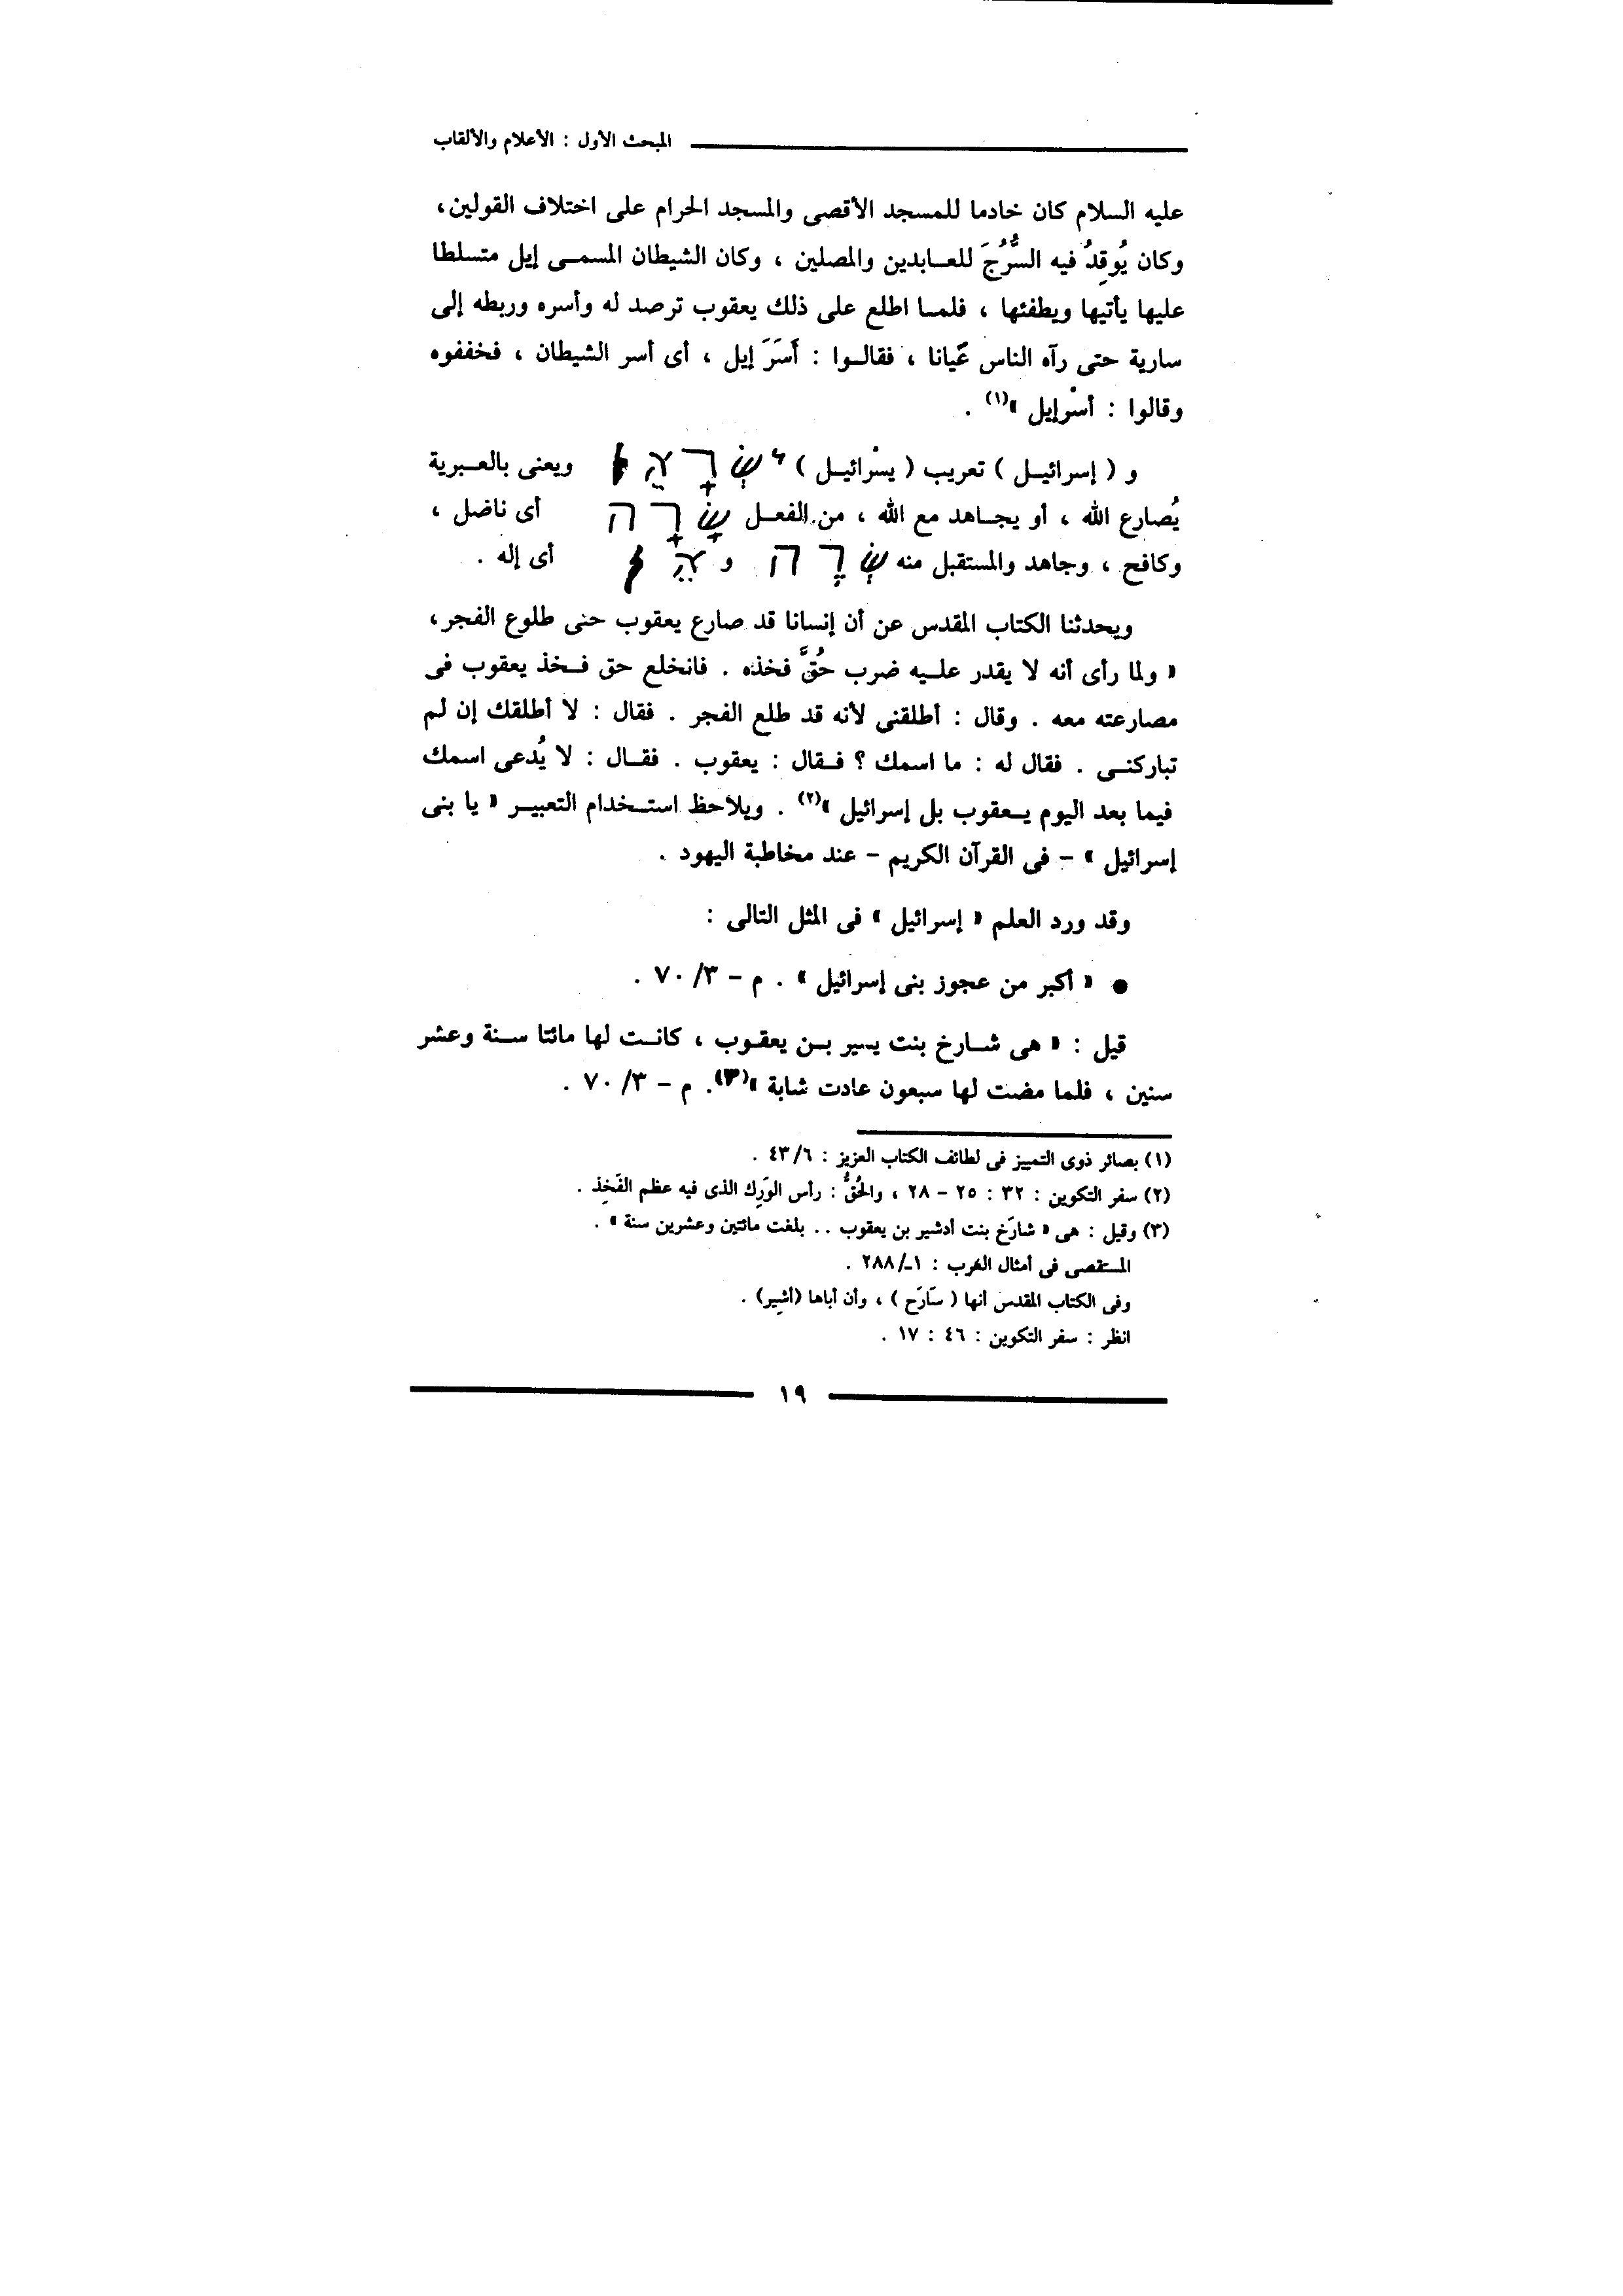 المبحث الأول : الأعلام والألقاب
عليه السلام كان خادما للمسجد الأقصى والمسجد الحرام على اختلاف القولين،
وكان يُوقِدُ فيه السُّرُجَ للعابدين والمصلين ، وكان الشيطان المسمى إيل متسلطا
عليها يأتيها ويطفئها ، فلما اطلع على ذلك يعقوب ترصد له وأسره وربطه إلى
سارية حتى رآه الناس عَيانا ، فقالوا : أَسَرَ إيل ، أى أسر الشيطان ، فخففوه
وقالوا : أسْرإيل »(١) .
و ( إسرائيل ) تعريب ( يسْرائيل ) יִשְׂרָאֵל ويعنى بالعبرية
يُصارع الله ، أو يجاهد مع الله ، من الفعل שָׂרָה أى ناضل ،
وكافح ، وجاهد والمستقبل منه שְׂרֶה و אֵל أى إله .
ويحدثنا الكتاب المقدس عن أن إنسانا قد صارع يعقوب حتى طلوع الفجر،
« ولما رأى أنه لا يقدر عليه ضرب حُقَّ فخذه . فانخلع حق فخذ يعقوب فى
مصارعته معه . وقال : أطلقنى لأنه قد طلع الفجر . فقال : لا أطلقك إن لم
تباركنى . فقال له : ما اسمك ؟ فقال : يعقوب . فقال : لا يُدعى اسمك
فيما بعد اليوم يعقوب بل إسرائيل »(٢) . ويلاحظ استخدام التعبير « يا بنى
إسرائيل » – فى القرآن الكريم – عند مخاطبة اليهود .
وقد ورد العلم « إسرائيل » فى المثل التالى :
● « أكبر من عجوز بنى إسرائيل » . م – ٣/ ٧٠ .
قيل : « هى شارخ بنت يسير بن يعقوب ، كانت لها مائتا سنة وعشر
سنين ، فلما مضت لها سبعون عادت شابة »(٣). م – ٣/ ٧٠ .
(١) بصائر ذوى التمييز فى لطائف الكتاب العزيز : ٤٣/٦ .
(٢) سفر التكوين : ٣٢ : ٢٥ – ٢٨ ، والحُقُّ : رأس الوَرِك الذى فيه عظم الفَخِذ .
(٣) وقيل : هى « شارَخ بنت أدشير بن يعقوب .. بلغت مائتين وعشرين سنة » .
المستقصى فى أمثال العرب : ١ـ/٢٨٨ .
وفى الكتاب المقدس أنها ( سَارَح ) ، وأن أباها (أشِير) .
انظر : سفر التكوين : ٤٦ : ١٧ .
١٩